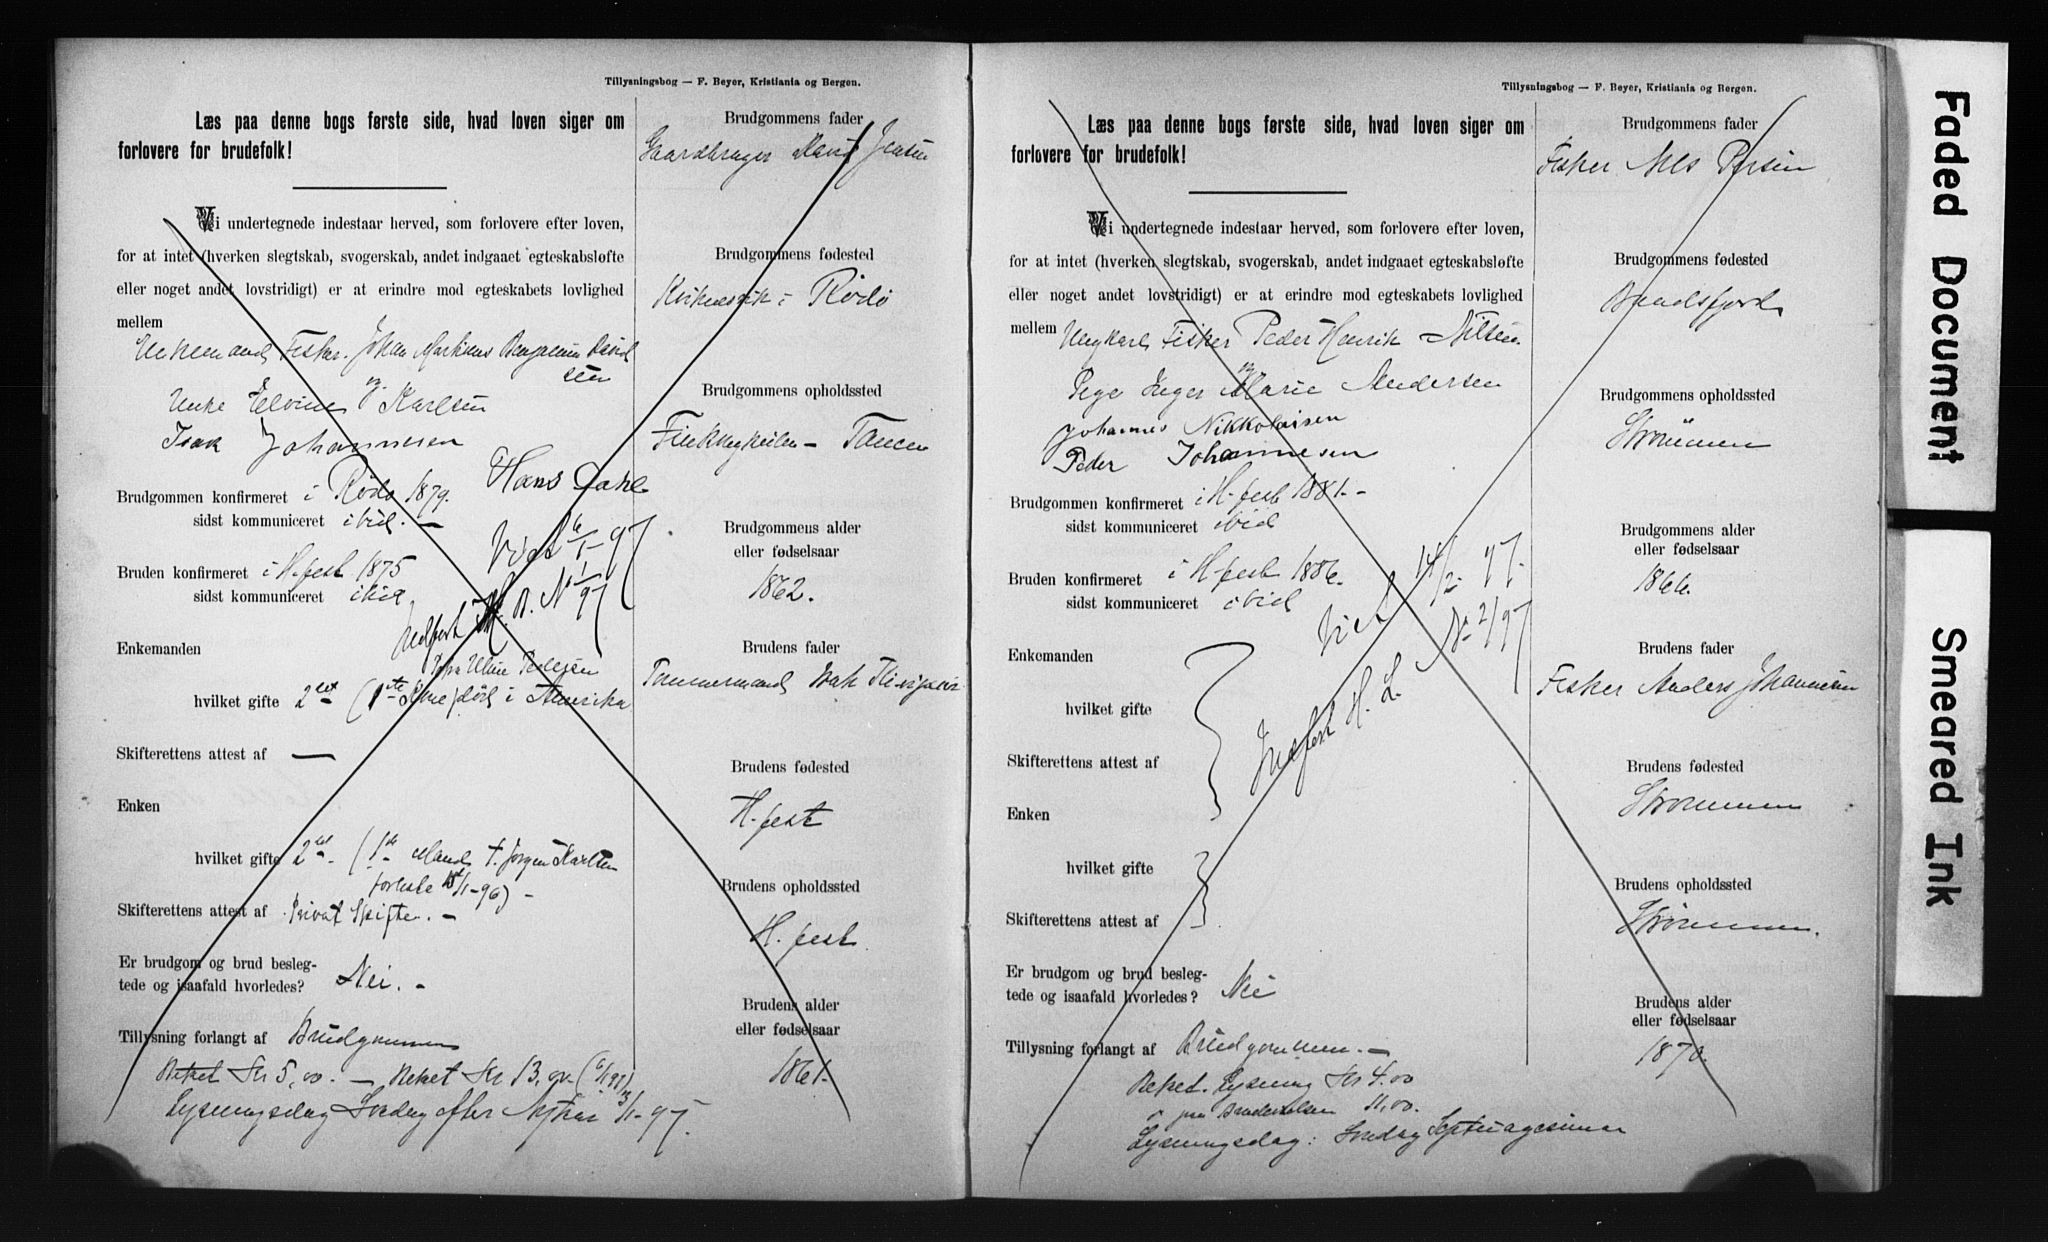 Tillysningsbog — F. Beyer, Kristiania og Bergen.
Læs paa denne bogs første side, hvad loven siger om
forlovere for brudefolk!
Vi undertegnede indestaar herved, som forlovere efter loven,
for at intet (hverken slegtskab, svogerskab, andet indgaaet egteskabsløfte
eller noget andet lovstridigt) er at erindre mod egteskabets lovlighed
mellem
Enkemand Fisker Johan Martinus Benjamin David
sen
og
Enke Elvine Karlsen
Isak Johannesen
Hans Dahl
Brudgommen konfirmeret i Rødø 1879.
sidst kommuniceret ibid. —
Viet 6/1-97
Bruden konfirmeret i H-fest 1875
sidst kommuniceret ibid.
Indført N° 1/97
Enkemanden
hvilket gifte 2det (1ste død i Amerika
Skifterettens attest af —
Enken
hvilket gifte 2det (1ste Mand F. Jørgen Karlsen
forliste 15/1-96) —
Skifterettens attest af Privat Skifte. —
Er brudgom og brud besleg-
tede og isaafald hvorledes? Nei. —
Tillysning forlangt af Brudgommen
Kr 5,00. —
Lysningsdag Søndag efter Nytaar 3/1-97
Brudgommens fader
Gaardbruger David Jensen
Brudgommens fødested
i Rødø
Brudgommens opholdssted
Brudgommens alder
eller fødselsaar
1862.
Brudens fader
Tømmermand Isak
Brudens fødested
H-fest
Brudens opholdssted
H. fest
Brudens alder
eller fødselsaar
1861.
Tillysningsbog — F. Beyer, Kristiania og Bergen.
Læs paa denne bogs første side, hvad loven siger om
forlovere for brudefolk!
Vi undertegnede indestaar herved, som forlovere efter loven,
for at intet (hverken slegtskab, svogerskab, andet indgaaet egteskabsløfte
eller noget andet lovstridigt) er at erindre mod egteskabets lovlighed
mellem
Ungkarl Fisker Peder Henrik Nilsen
og
Pige Inger Marie Andersen
Johannes Nikkolaisen
Peder Johannesen
Brudgommen konfirmeret i H-fest 1881. —
sidst kommuniceret ibid
Bruden konfirmeret i H-fest 1886.
sidst kommuniceret ibid
Viet 14/2-97.
Indført H. L. N° 2/97
Enkemanden
hvilket gifte
Skifterettens attest af
Enken
hvilket gifte
Skifterettens attest af
Er brudgom og brud besleg-
tede og isaafald hvorledes? Nei
Tillysning forlangt af Brudgommen. —
Lysning Kr 4.00
11,00.
Lysningsdag: Søndag Septuagesima
Brudgommens fader
Fisker Nils
Brudgommens fødested
Brudgommens opholdssted
Strømmen
Brudgommens alder
eller fødselsaar
1866.
Brudens fader
Fisker Anders Johannesen
Brudens fødested
Strømmen
Brudens opholdssted
Strømmen.
Brudens alder
eller fødselsaar
1870.
Faded Document
Smeared Ink